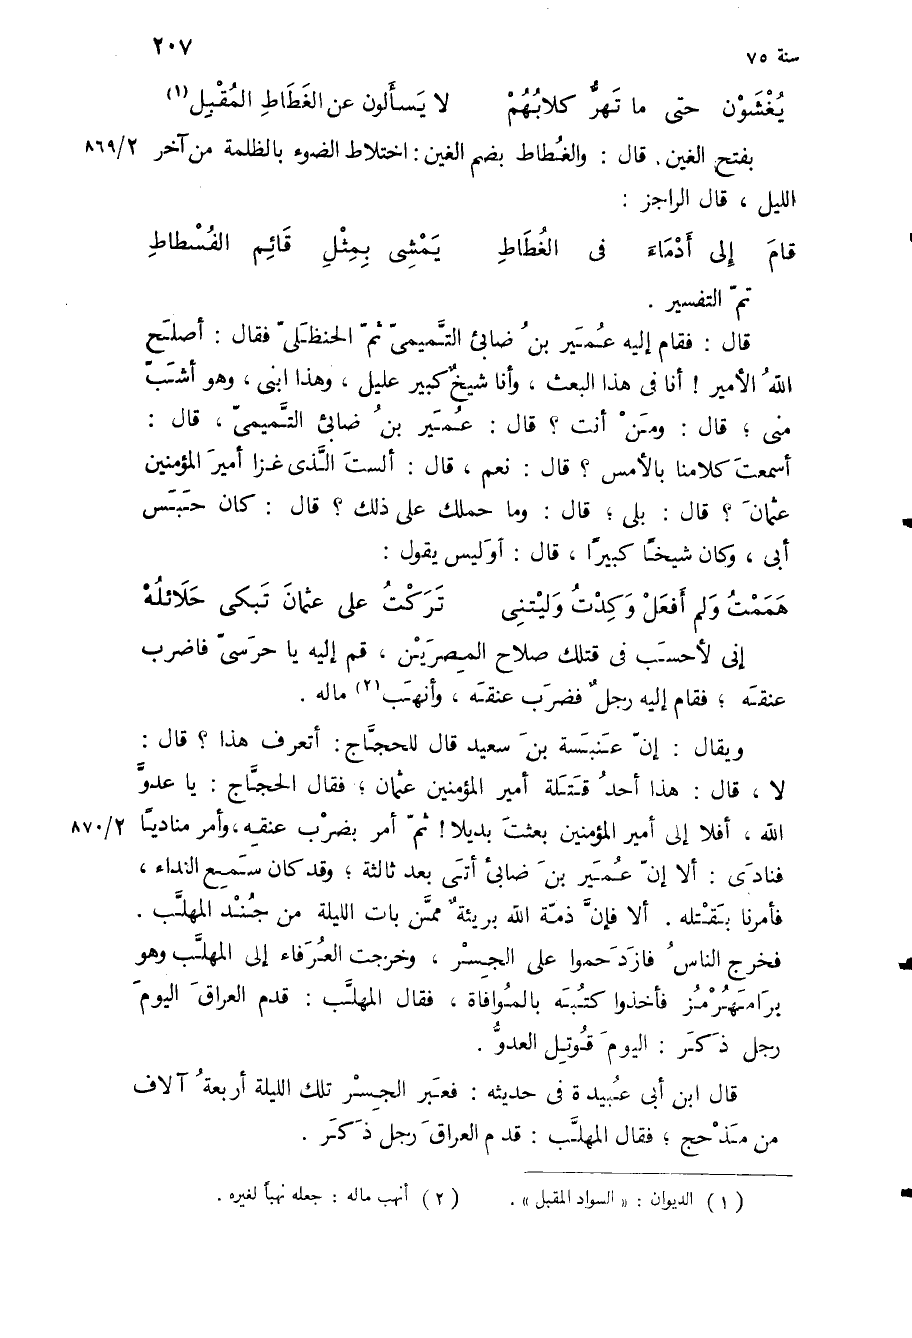 سنة ٧٥ ٢٠٧
يُغْشَوْن حتى ما تَهِرُّ كلابُهُمْ لا يَسأَلون عن الغَطَاطِ المُقْبِل(١)
بفتح الغين. قال : والغُطاط بضم الغين : اختلاط الضوء بالظلمة من آخر ٨٦٩/٢
الليل ، قال الراجز :
قامَ إلى أَدْمَاءَ فى الغُطَاطِ يَمْشِى بِمِثْلِ قَائِم الفُسْطاطِ
تمّ التفسير .
قال : فقام إليه عُمَير بنُ ضابئ التَّميمىّ ثمّ الحنظَلىّ فقال : أصلَح
اللهُ الأمير ! أنا فى هذا البعث ، وأنا شيخٌ كبير عليل ، وهذا ابنى ، وهو أشَبّ
منى ؛ قال : ومَنْ أنت ؟ قال : عُمَير بنُ ضابئ التَّميمىّ ، قال :
أسمعتَ كلامنا بالأمس ؟ قال : نعم ، قال : ألستَ الَّذى غزا أميرَ المؤمنين
عثمانَ ؟ قال : بلى ؛ قال : وما حملك على ذلك ؟ قال : كان حَبَسَ
أبى ، وكان شيخًا كبيرًا ، قال : أوَليس يقول :
هَمَمْتُ وَلم أَفعَلْ وَكِدْتُ وَلَيْتنِى تَرَكْتُ على عثمانَ تَبكى حَلَائلُهْ
إنى لأحسَب فى قتلك صلاح المِصرَيْن ، قم إليه يا حرَسىّ فاضرب
عنقَه ؛ فقام إليه رجلٌ فضرَب عنقَه ، وأنهَب(٢) ماله .
ويقال : إنّ عَنبَسة بنَ سعيد قال للحجَّاج : أتعرف هذا ؟ قال :
لا ، قال : هذا أحدُ قَتَلة أمير المؤمنين عثمان ؛ فقال الحجَّاج : يا عدوَّ
الله ، أفلا إلى أمير المؤمنين بعثتَ بديلا ! ثمّ أمر بضرْب عنقه ، وأمر منادياً ٨٧٠/٢
فنادَى : ألا إنّ عُمَير بنَ ضابئ أتَى بعد ثالثة ؛ وقد كان سَمِع النداء ،
فأمرنا بقَتْله . ألا فإنَّ ذمّة الله بريئةٌ ممَّن بات الليلة من جُنْد المهلَّب .
فخرج الناسُ فازدَحموا على الجِسْر ، وخرجت العُرَفاء إلى المهلَّب وهو
برَامَهُرْمُز فأخذوا كتُبَه بالمُوافاة ، فقال المهلَّب : قدم العراقَ اليومَ
رجل ذَكَر : اليومَ قُوتِل العدوُّ .
قال ابن أبى عُبيدة فى حديثه : فعَبَر الجِسْر تلك الليلة أربعةُ آلاف
من مَذْحج ؛ فقال المهلَّب : قدم العراقَ رجل ذَكَر .
(١) الديوان : « السواد المقبل » . (٢) أنهب ماله : جعله نهباً لغيره .